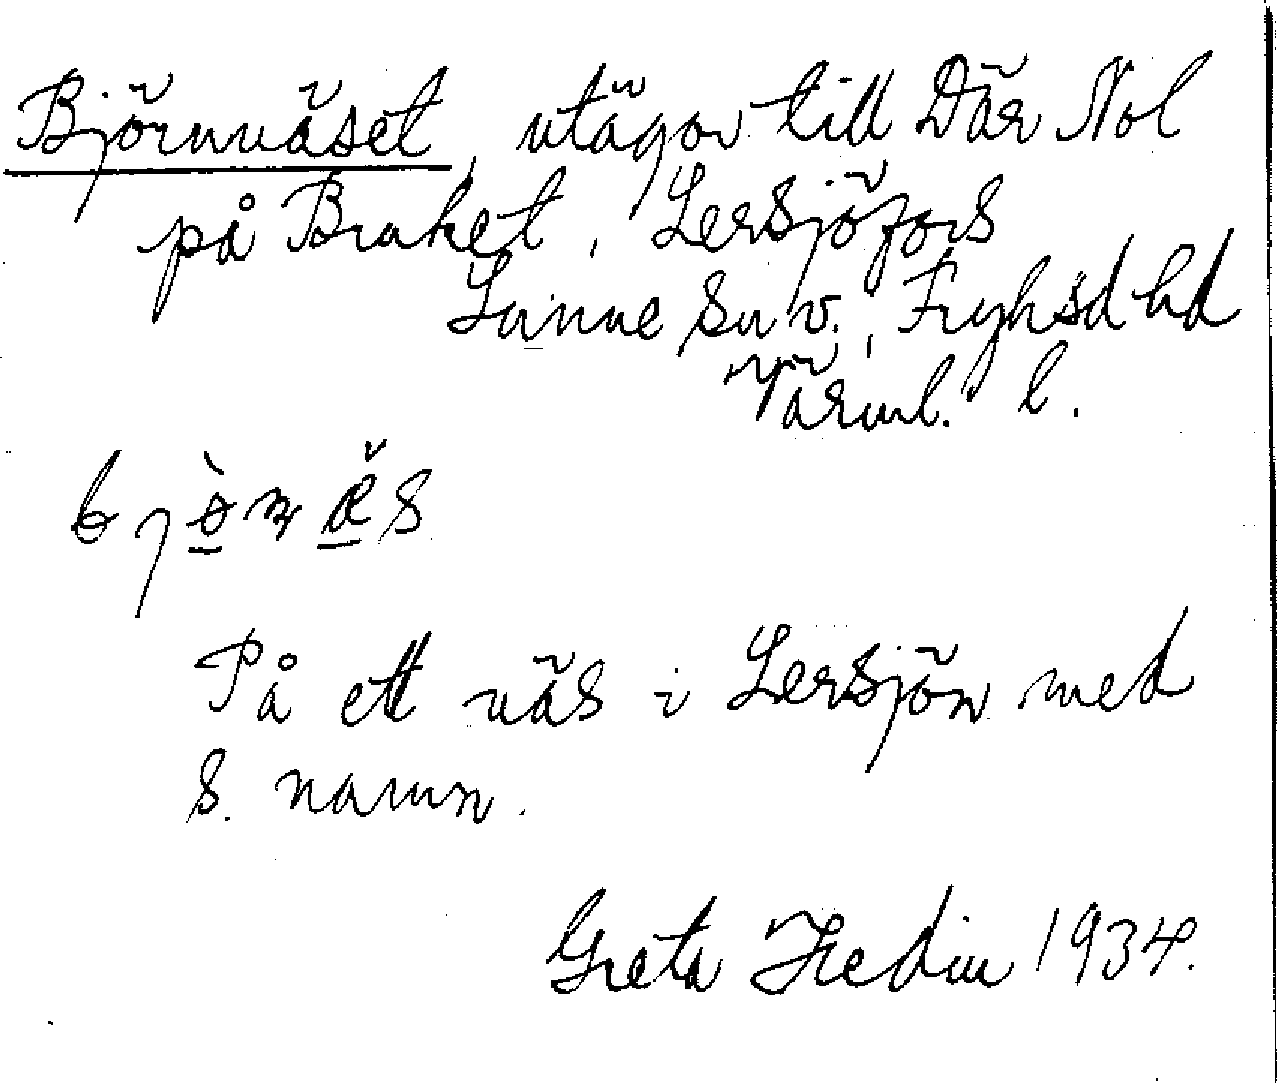 Björnnäset, utägor till Där Nol
på Braket, Lersjöfors
Sunne sn v., Fryksd hd
Värml. l.
På ett näs i Lersjön med
s. namn.
Greta Hedin 1934.